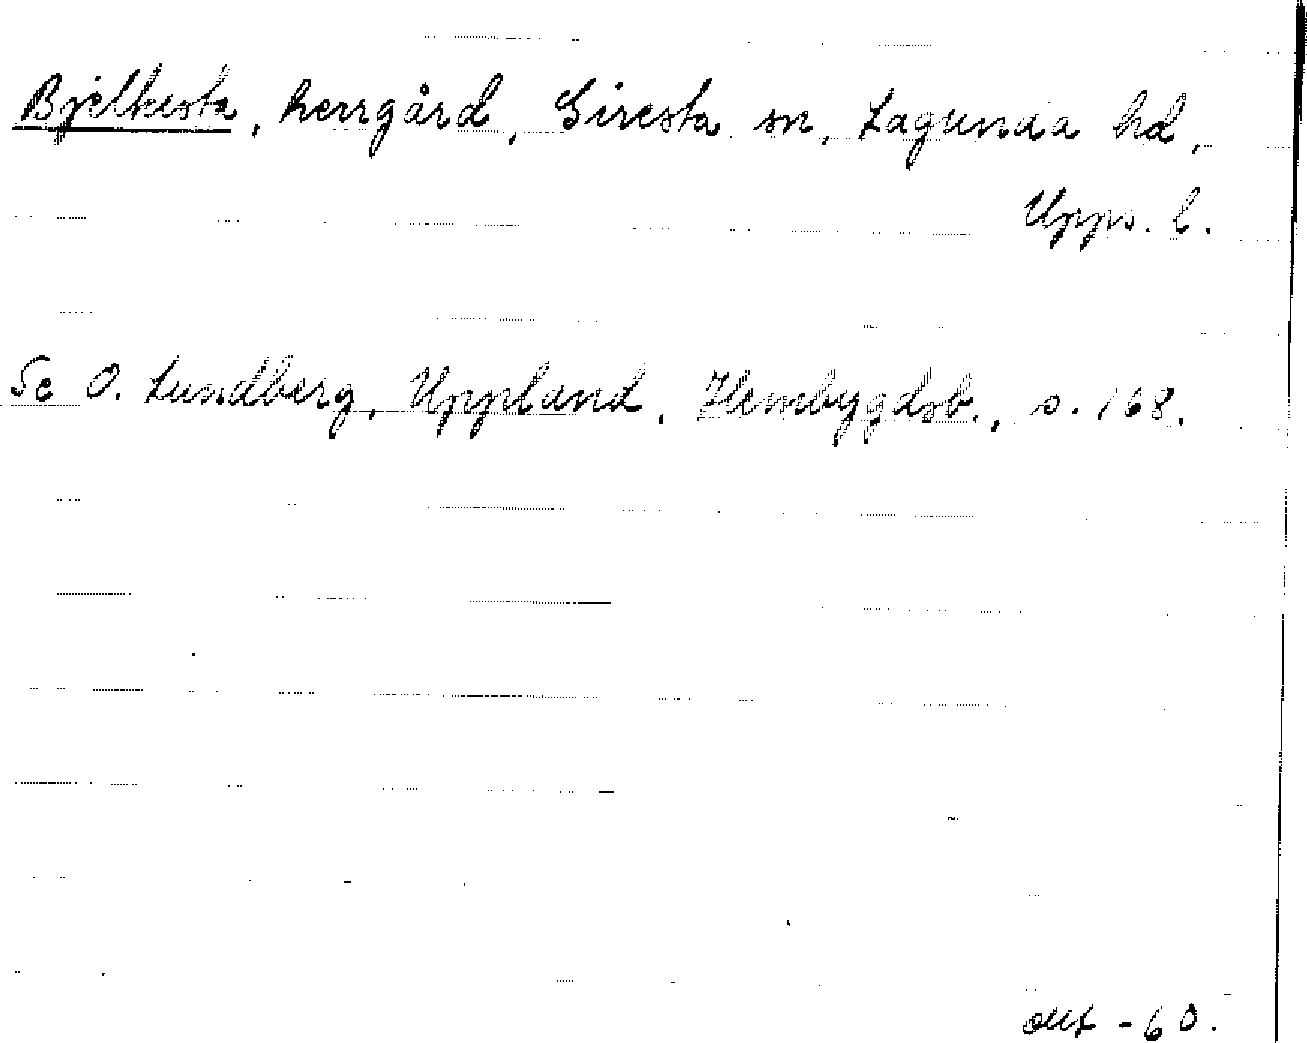 Bjelkesta, herrgård, Giresta sn, Lagunda hd,
Upps. l.
Se O. Lundberg, Uppland, Hembygdsb., s. 168.
okt -60.